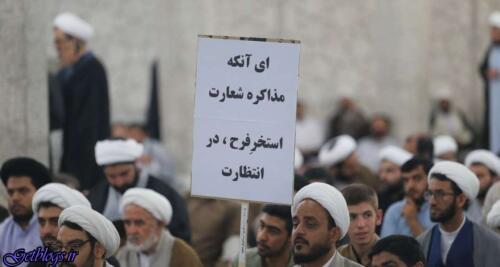 ای آنکه
مذاکره شعارت
استخرفرح ، در
انتظارت
Getblogs.ir